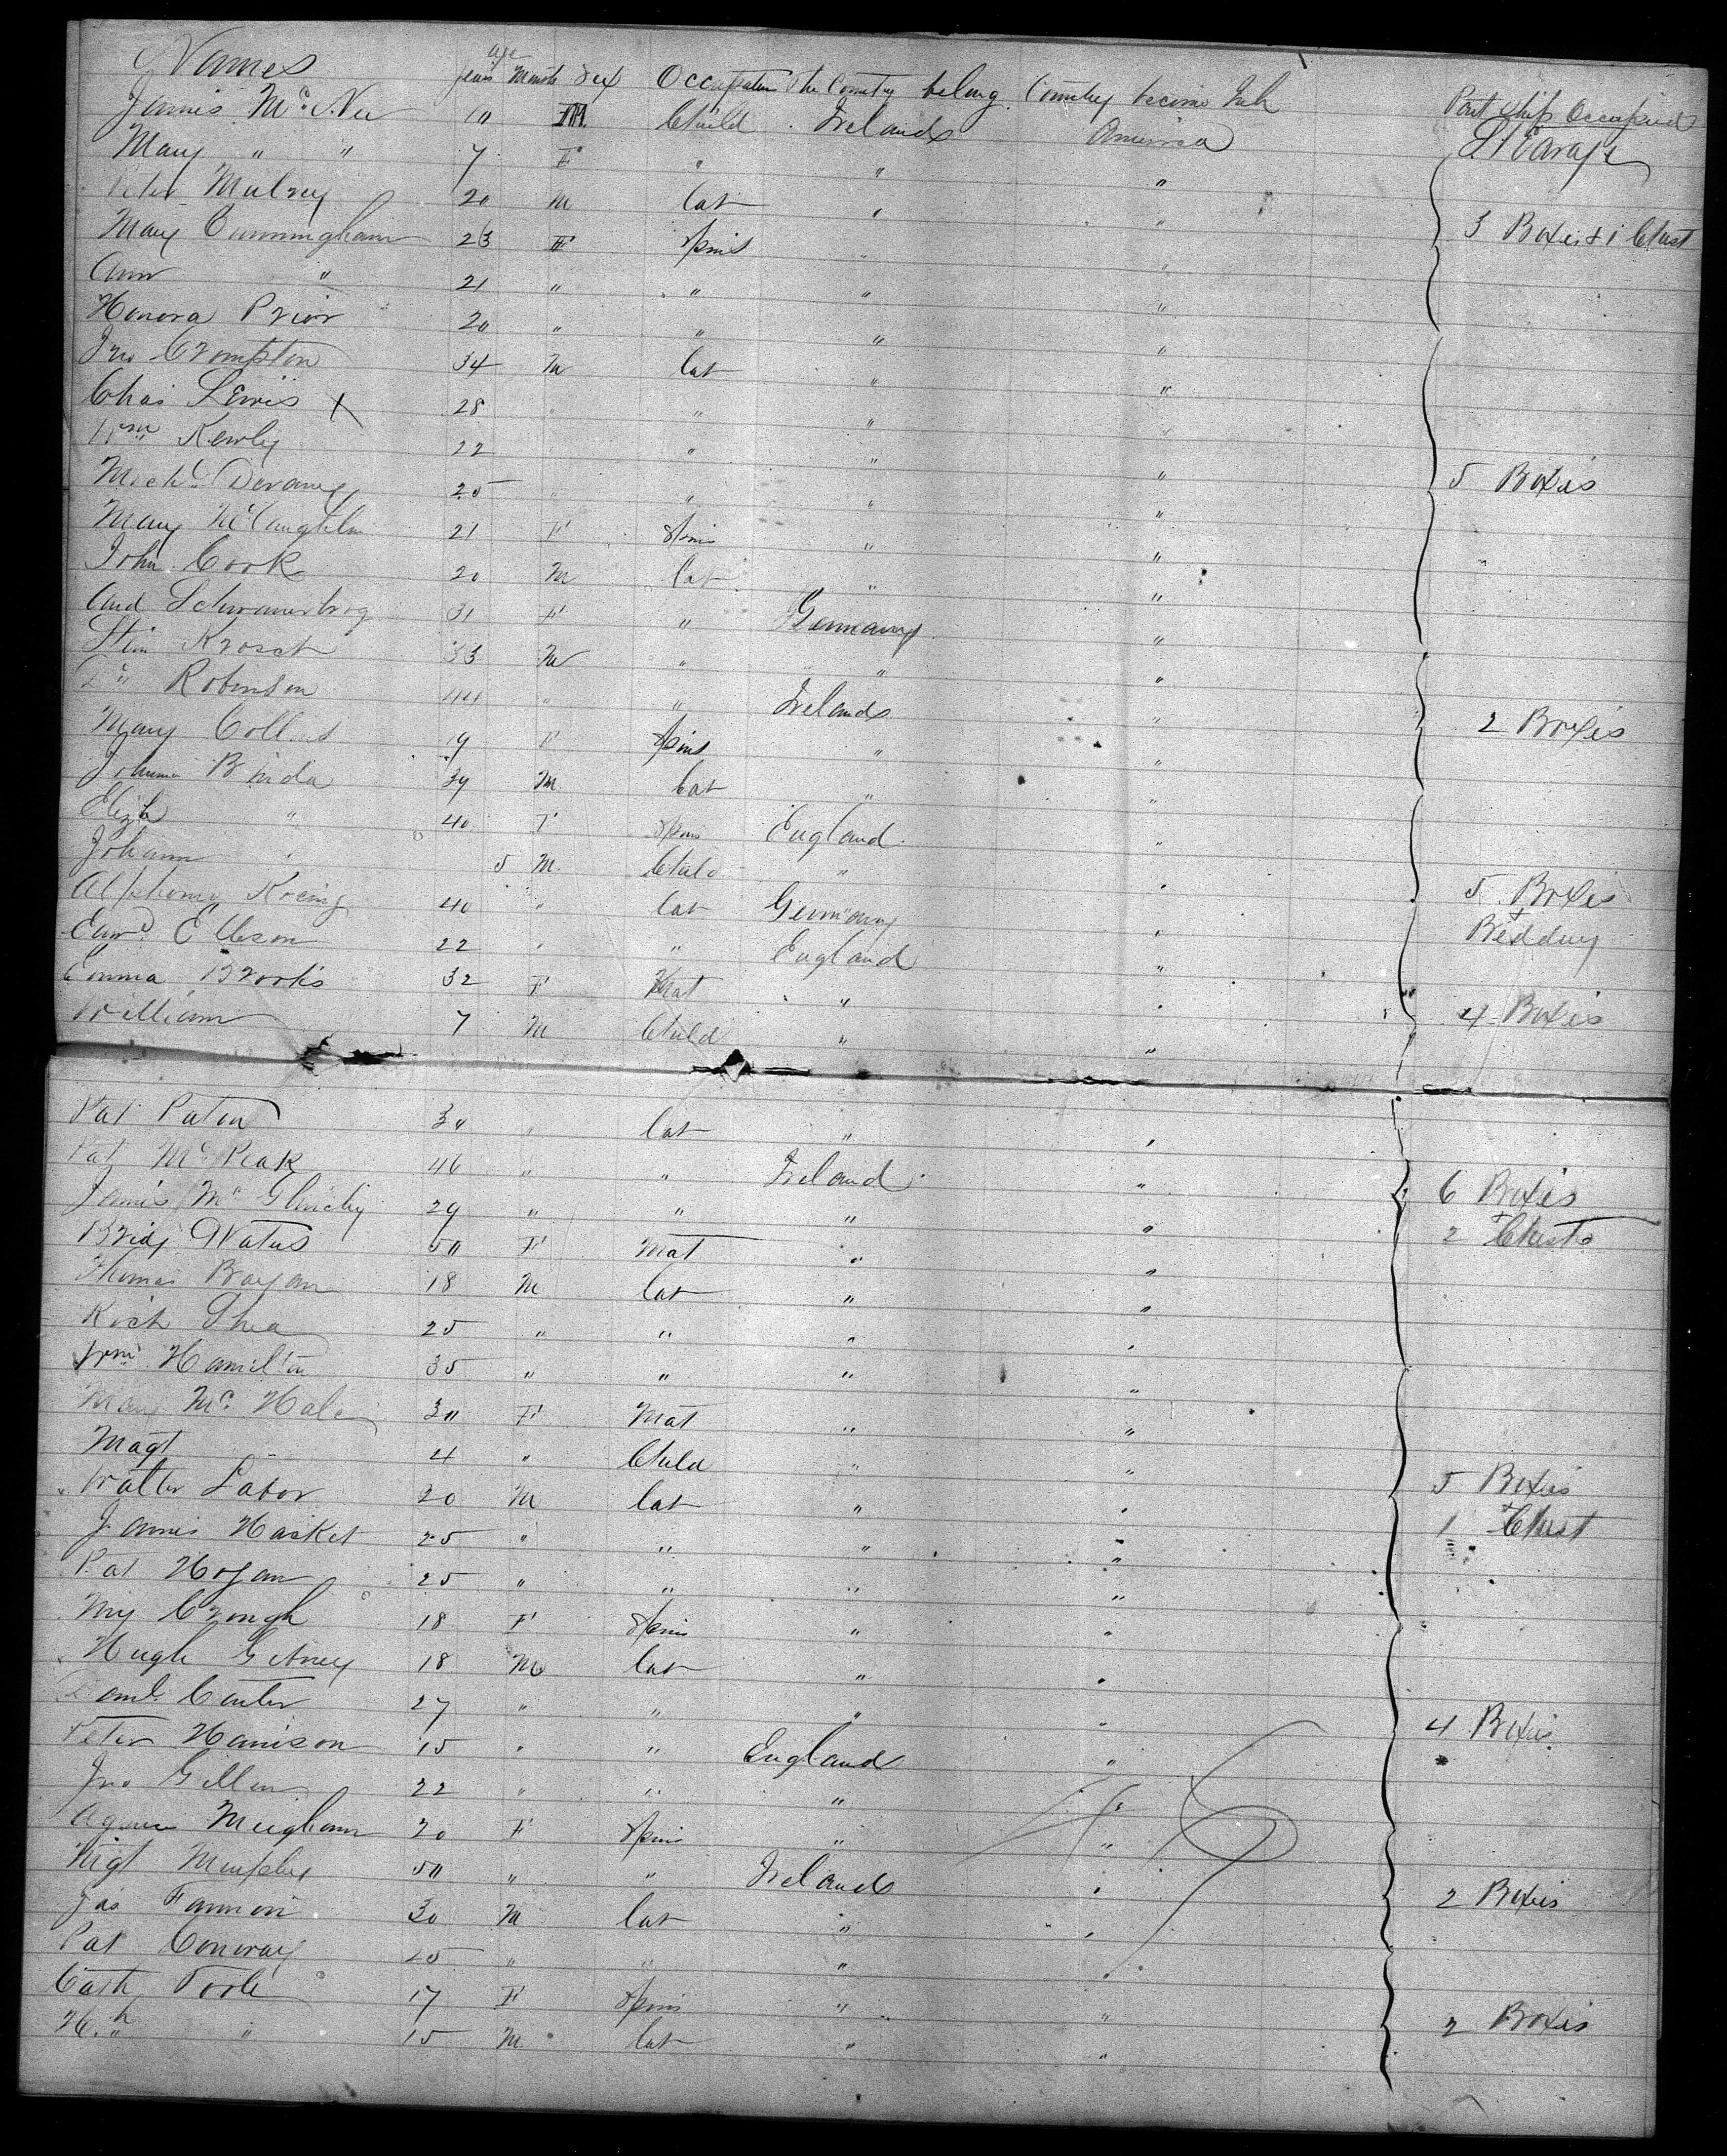 Names age years Month Sex Occupation The Country belong Country become Inh Part Ship Occupied
James Mc Nee 10 M Child Ireland America Stearage
Mary " " 7 F " " "
Peter Mulrey 20 M Lab " "
Mary Cunningham 23 F Spins " " 3 Boxes & 1 Chest
Ann " 21 " " " "
Honora Prior 20 " " " "
Jno Crompton 34 M Lab " "
Chas Lewis X 28 " " " "
Wm Kewley 22 " " " "
Michl Devaney 25 " " " " 5 Boxes
Mary McLaughlin 21 F Spins " "
John Cook 20 M Lab " "
31 F " Germany "
33 M " " "
Robinson 44 " " Ireland "
Mary Collins 19 F Spins " " 2 Boxes
39 M Lab " "
Elizh " 40 F Spins England "
Johann " 5 M Child " "
40 " Lab Germany " 5 Boxes
Edwd Elleson 22 " " England " + Bedding
Emma Brooks 32 F Mat " "
William 7 M Child " " 4 Boxes
Pat Paton 30 " Lab " "
Pat Mc Peak 46 " " Ireland " 6 Boxes
James Mc Glinchy 29 " " " " + 2 Chests
Bridj Waters 50 F Mat " "
Thomas Bogan 18 M Lab " "
Rich Shea 25 " " " "
Wm Hamilton 35 " " " "
Mary Mc Hale 30 F Mat " "
Magt 4 " Child " "
Walter Labor 20 M Lab " " 5 Boxes
James Hasket 25 " " " " + 1 Chest
Pat Hogan 25 " " " "
My Crough 18 F Spins " "
Hugh 18 M Lab " "
Danl Carter 27 " " " " 4 Boxes
Peter Harrison 15 " " England "
Jno Gillen 22 " " " "
Agnes Meighann 20 F Spins " "
Mgt Murphy 50 " " Ireland " 2 Boxes
Jas Fannon 30 M Lab " "
Pat Conway 25 " " " "
Cath Toole 17 F Spins " "
Hh " 15 M Lab " " 2 Boxes